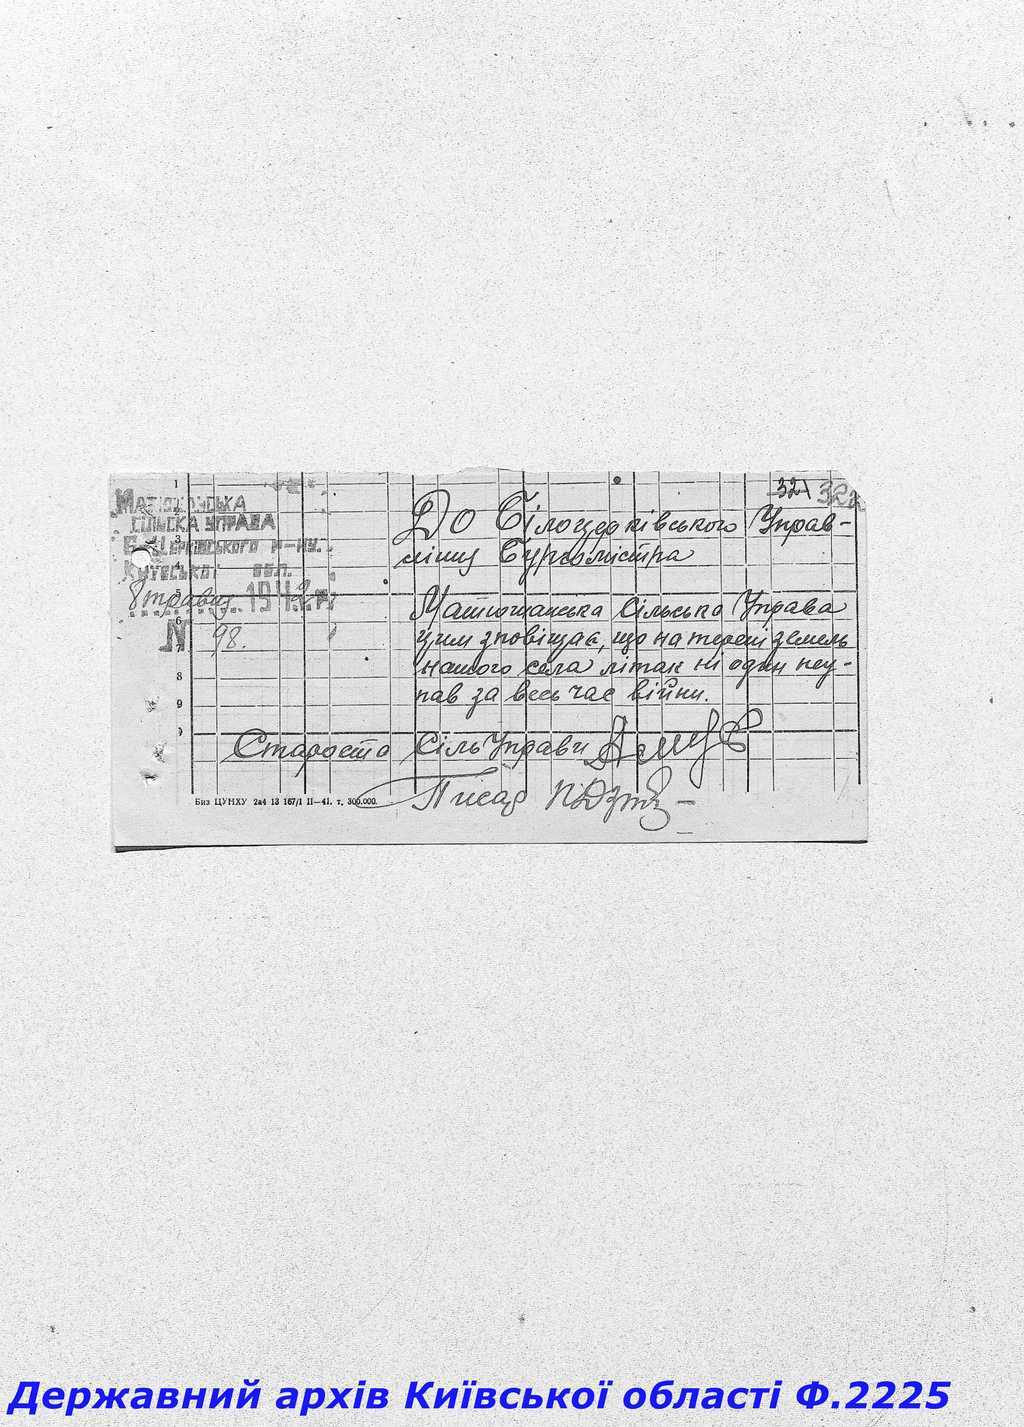 321 322
Матюшська
Сільска управа
Б-Церківського р-ну.
Київської обл.
8 травня 1942 р.
N 98.
До Білоцерківського Управ-
лінню Бургомістра
Матюшанська Сільська Управа
цим зповіщає, що на терені земель
нашого села літак ні один неу-
пав за весь час війни.
Староста СільУправи
Писар
1
3
4
5
6
7
8
9
Биз ЦУНХУ 2а4 13 167/1 II—41. т. 300.000.
Державний архів Київської області Ф.2225